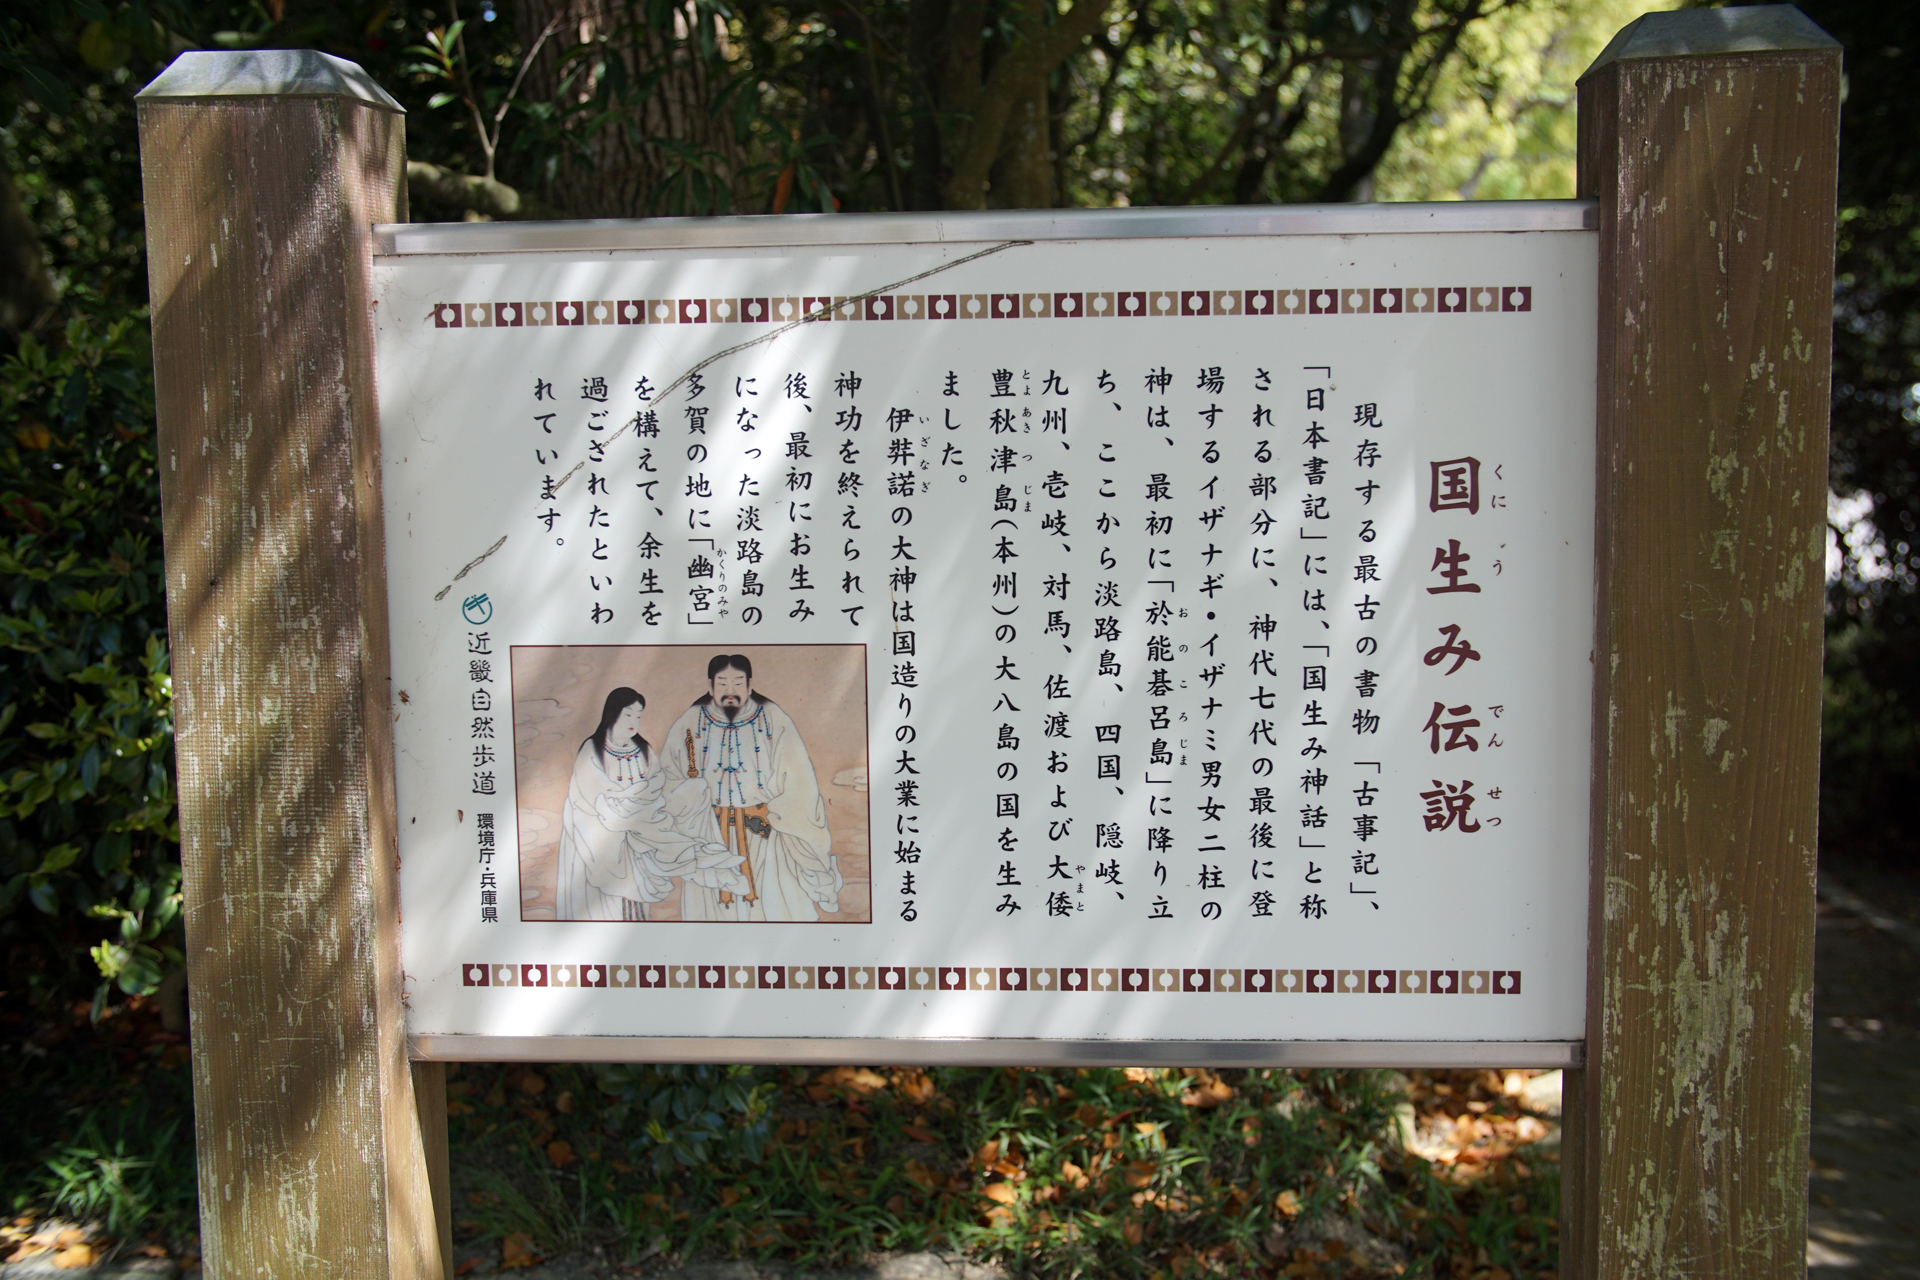 国生み伝説
くにうでんせつ
現存する最古の書物「古事記」、
「日本書記」には、「国生み神話」と称
される部分に、神代七代の最後に登
場するイザナギ・イザナミ男女二柱の
神は、最初に「於能碁呂島」に降り立
おのころじま
ち、ここから淡路島、四国、隠岐、
九州、壱岐、対馬、佐渡および大倭
やまと
豊秋津島(本州)の大八島の国を生み
とよあきつじま
ました。
伊弉諾の大神は国造りの大業に始まる
いざなぎ
神功を終えられて
後、最初にお生み
になった淡路島の
多賀の地に「幽宮」
かくりのみや
を構えて、余生を
過ごされたといわ
れています。
近畿自然歩道
環境庁・兵庫県